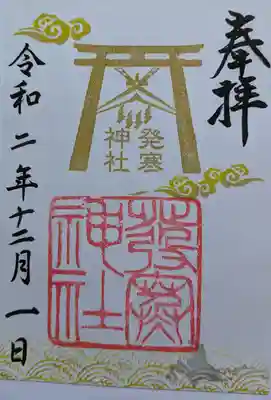 奉拝
発寒
神社
發寒
神社
令和二年十二月一日